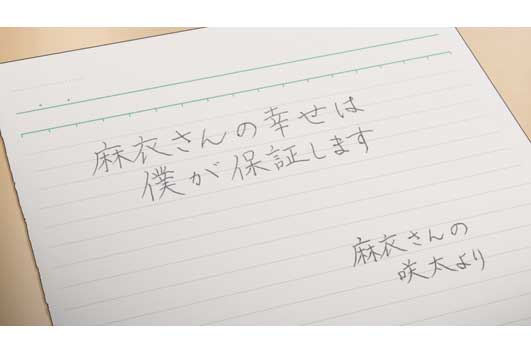 麻衣さんの幸せは
僕が保証します
麻衣さんの
咲太より